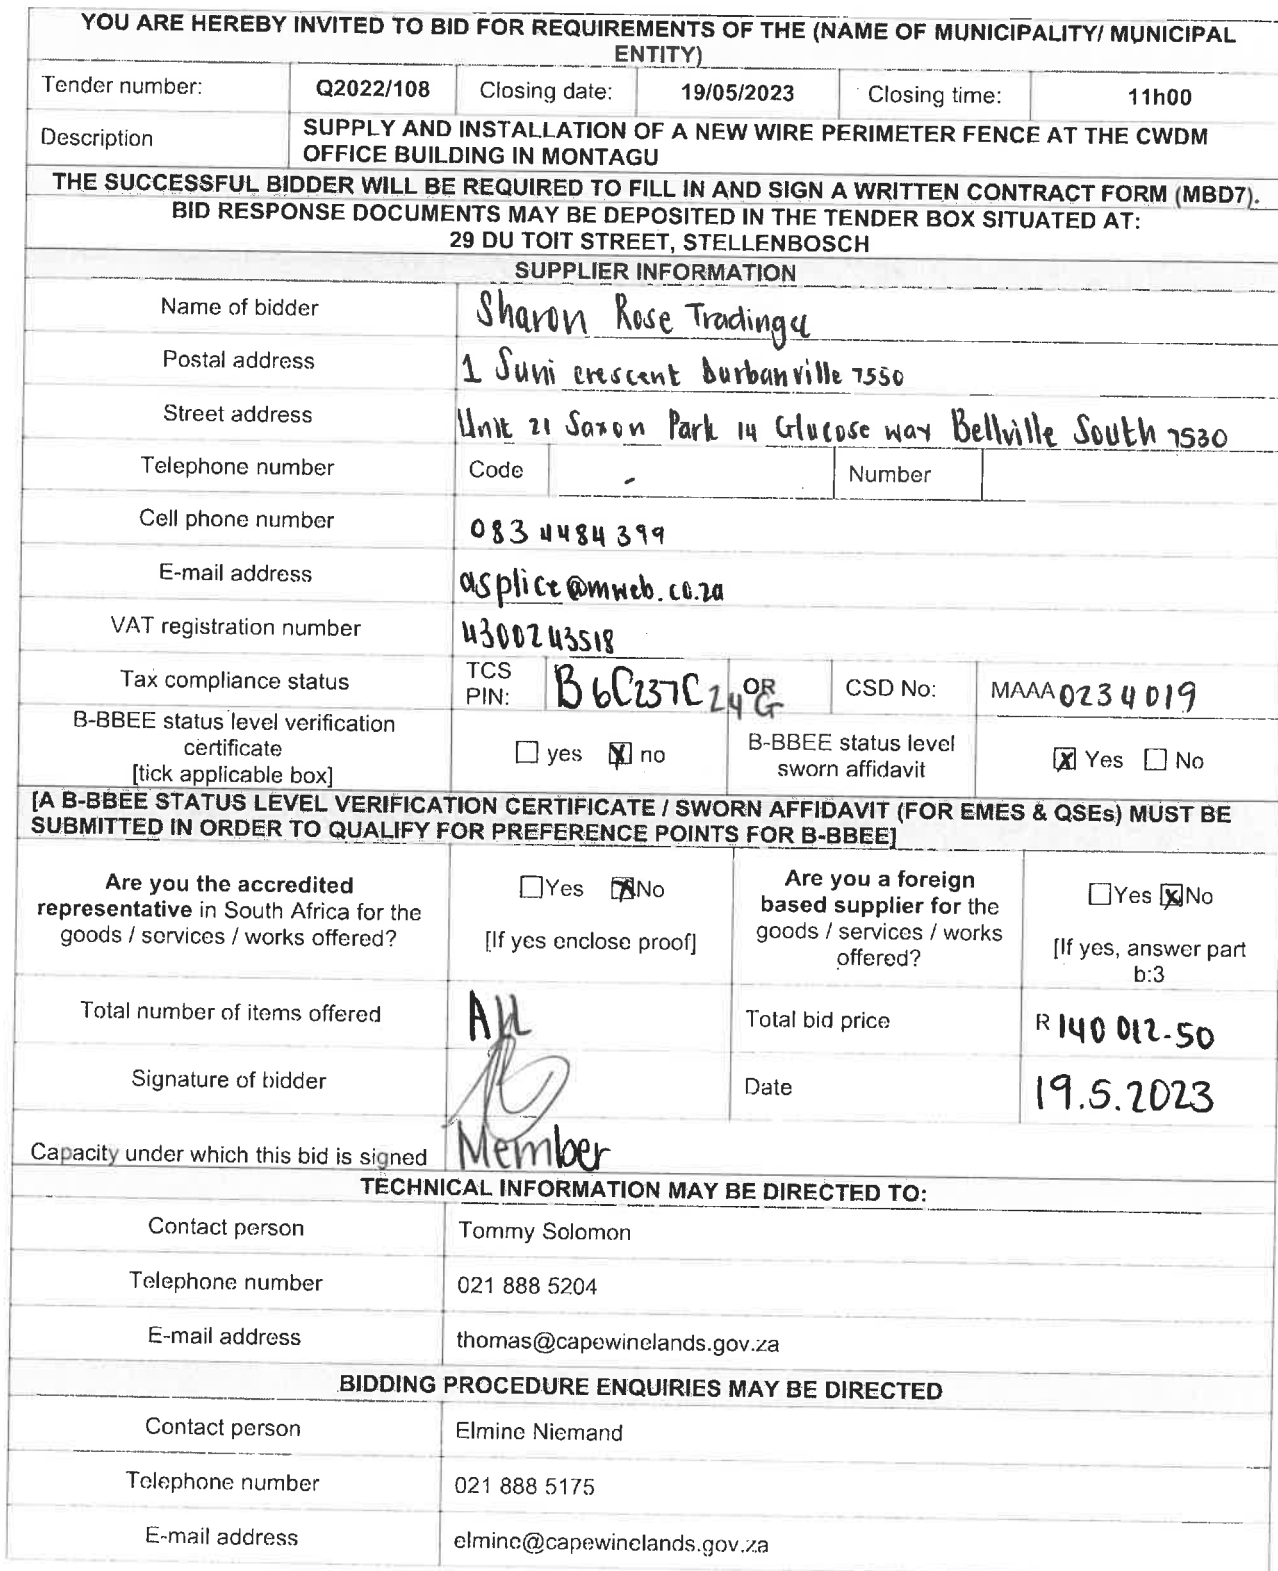 YOU ARE HEREBY INVITED TO BID FOR REQUIREMENTS OF THE (NAME OF MUNICIPALITY/ MUNICIPAL
ENTITY)
Tender number: Q2022/108 Closing date: 19/05/2023 Closing time: 11h00
Description SUPPLY AND INSTALLATION OF A NEW WIRE PERIMETER FENCE AT THE CWDM
OFFICE BUILDING IN MONTAGU
THE SUCCESSFUL BIDDER WILL BE REQUIRED TO FILL IN AND SIGN A WRITTEN CONTRACT FORM (MBD7).
BID RESPONSE DOCUMENTS MAY BE DEPOSITED IN THE TENDER BOX SITUATED AT:
29 DU TOIT STREET, STELLENBOSCH
SUPPLIER INFORMATION
Name of bidder Sharon Rose Trading
Postal address 1 Suni crescent Durbanville 7550
Street address Unit 21 Saxon Park 14 Glucose way Bellville South 7530
Telephone number Code - Number
Cell phone number 083 4484 399
E-mail address asplice@mweb.co.za
VAT registration number 4300243518
Tax compliance status TCS PIN: B6C237C24G OR CSD No: MAAA 0234019
B-BBEE status level verification
certificate
[tick applicable box] yes no B-BBEE status level
sworn affidavit Yes No
[A B-BBEE STATUS LEVEL VERIFICATION CERTIFICATE / SWORN AFFIDAVIT (FOR EMES & QSEs) MUST BE
SUBMITTED IN ORDER TO QUALIFY FOR PREFERENCE POINTS FOR B-BBEE]
Are you the accredited
representative in South Africa for the
goods / services / works offered?
Yes No
[If yes enclose proof]
Are you a foreign
based supplier for the
goods / services / works
offered?
Yes No
[If yes, answer part
b:3
Total number of items offered All Total bid price R 140 012-50
Signature of bidder Date 19.5.2023
Capacity under which this bid is signed Member
TECHNICAL INFORMATION MAY BE DIRECTED TO:
Contact person Tommy Solomon
Telephone number 021 888 5204
E-mail address thomas@capewinelands.gov.za
BIDDING PROCEDURE ENQUIRIES MAY BE DIRECTED
Contact person Elmine Niemand
Telephone number 021 888 5175
E-mail address elmine@capewinelands.gov.za